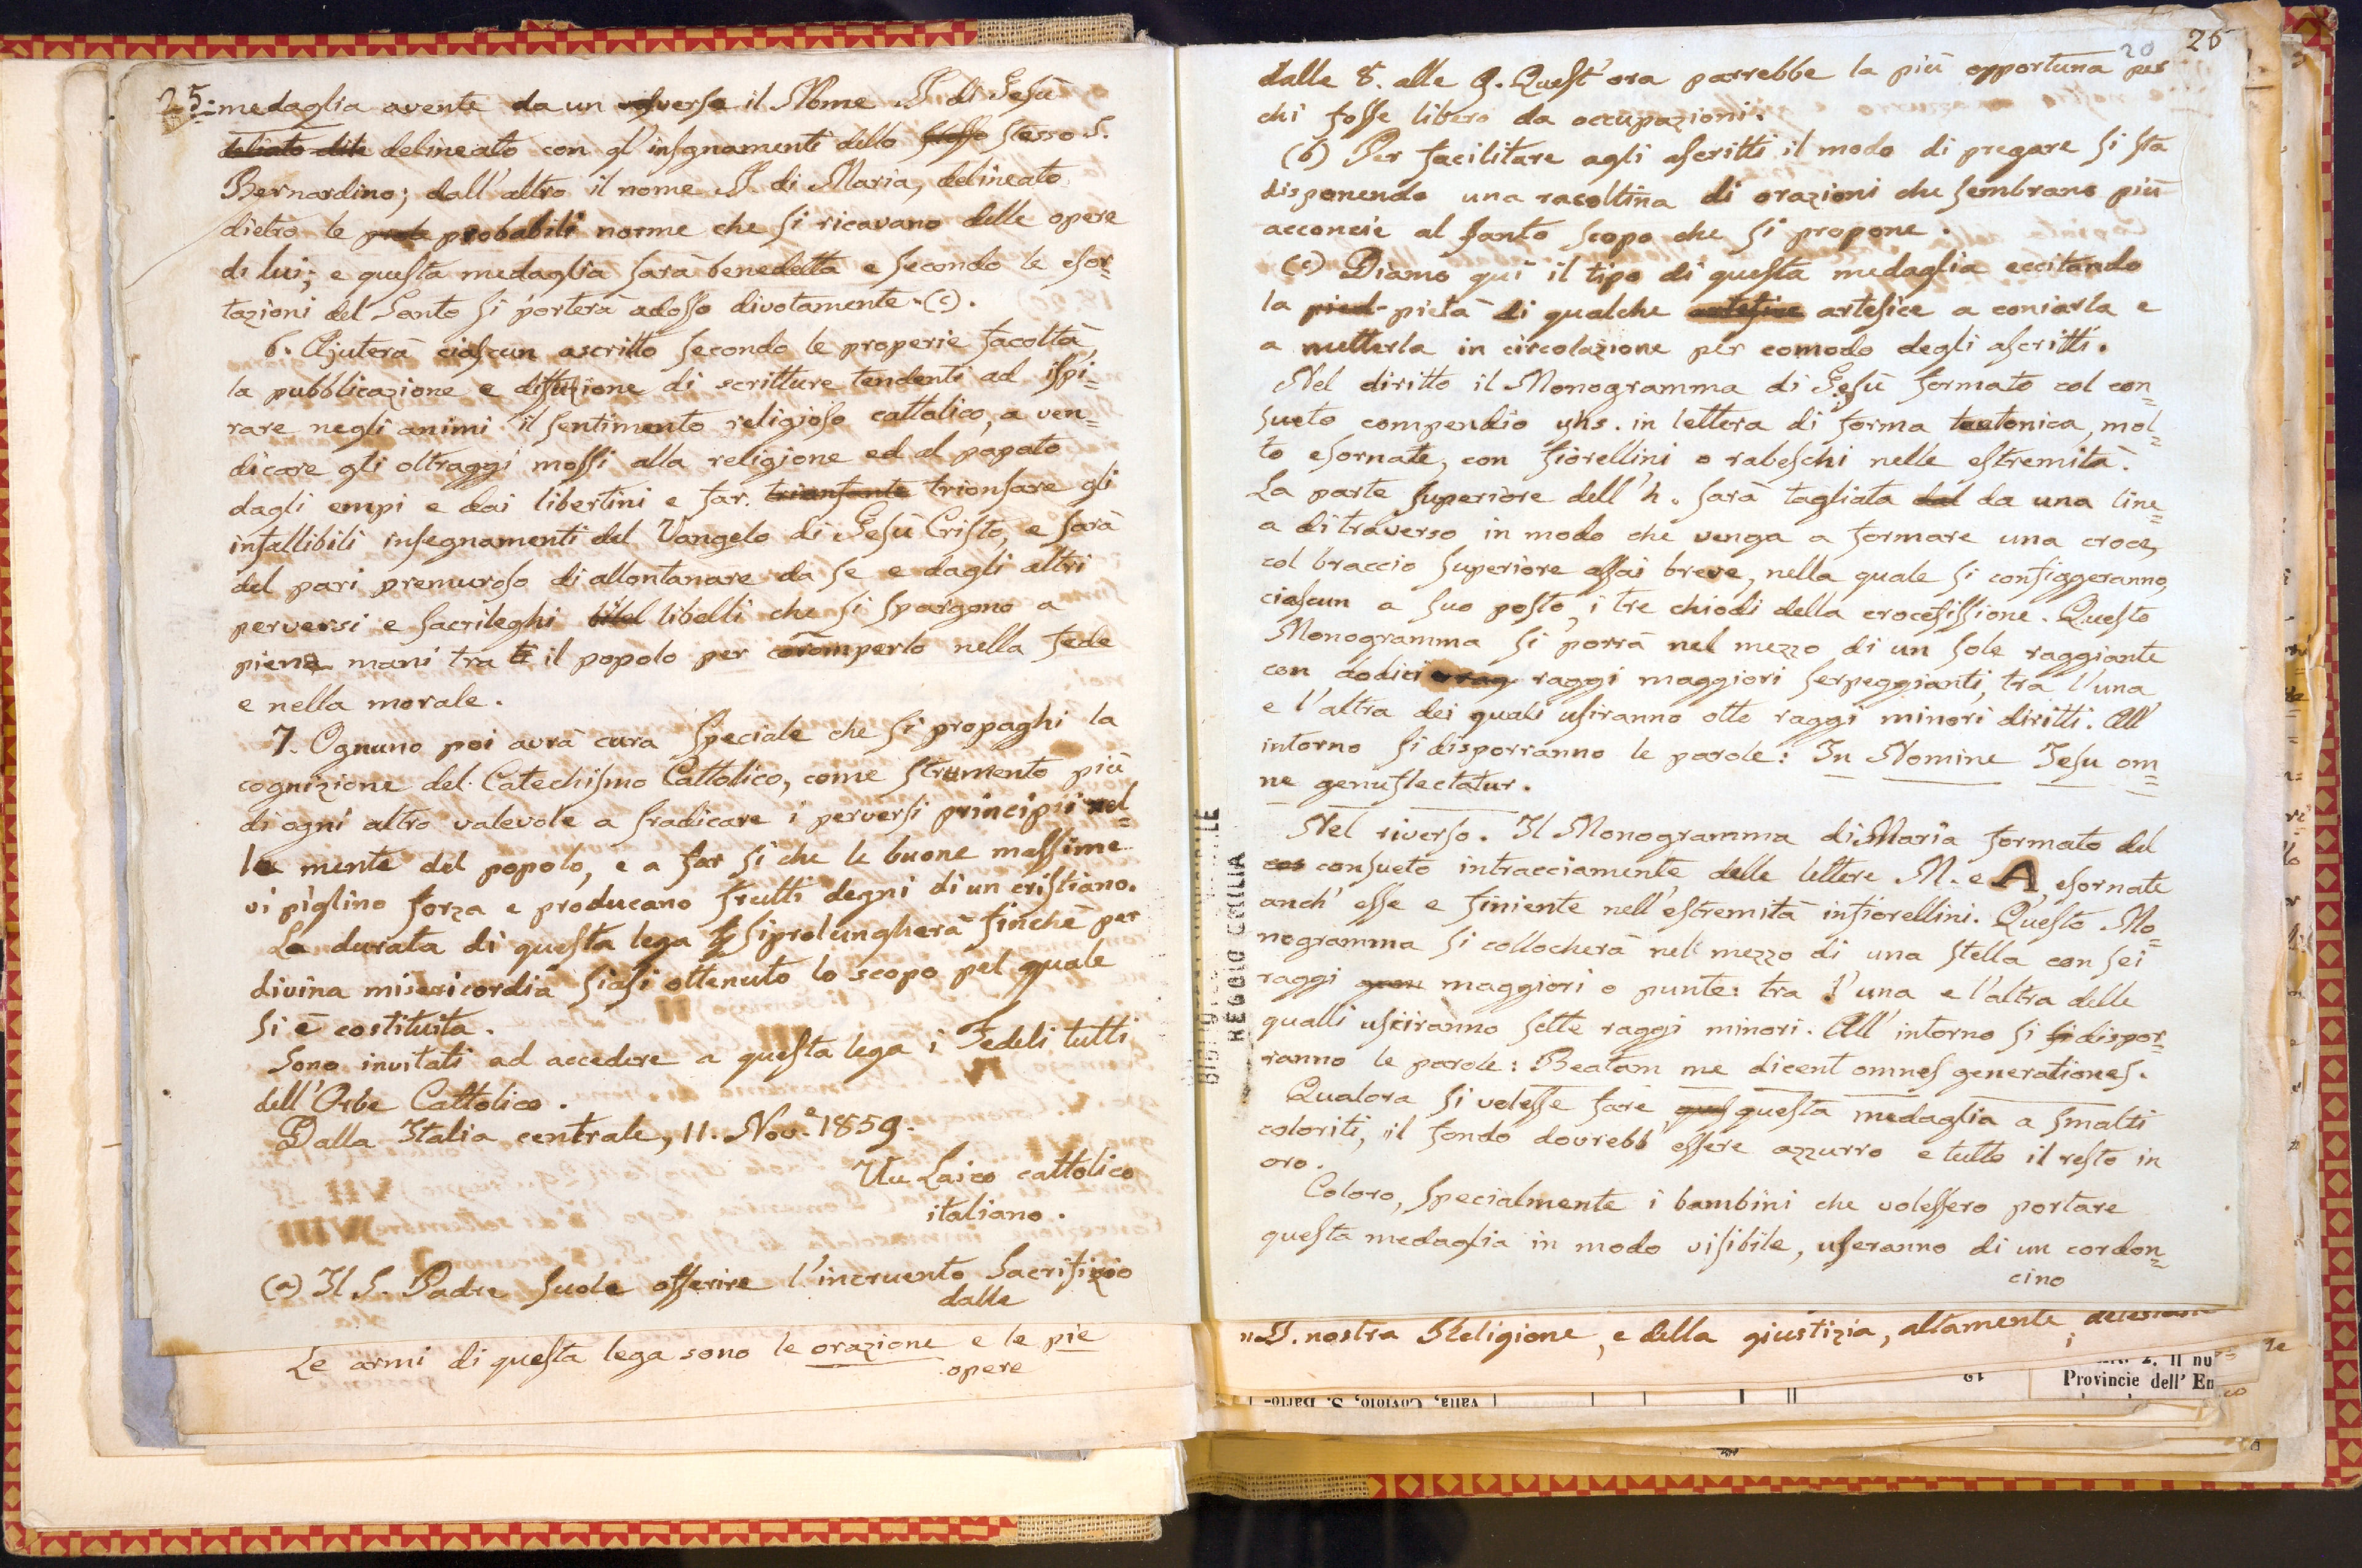 25= medaglia avente da un adverso il Nome S. di Gesù
deliato dite delineato con gl'insegnamenti dello stesso stesso S.
Bernardino; dall'altro il nome S. di Maria, delineato
dietro le prob probabili norme che si ricavano delle opere
di lui; e questa medaglia sarà benedetta e secondo le esor=
tazioni del Santo si porterà adosso divotamente (c).
6. Ajuterà ciascun ascritto secondo le properie facoltà
la pubblicazione e diffusione di scritture tendenti ad ispi=
rare negli animi il sentimento religioso cattolico, a ven=
dicare gli oltraggi mossi alla religione ed al papato
dagli empi e dai libertini e far. trionfante trionfare gli
infallibili insegnamenti del Vangelo di Gesù Cristo, e sarà
del pari premuroso di allontanare da se e dagli altri
perversi e sacrileghi libel libelli che si spargono a
piena mani tra ti il popolo per coromperlo nella fede
e nella morale.
7. Ognuno poi avrà cura speciale che si propaghi la
cognizione del Catechismo Cattolico, come strumento più
di ogni altro valevole a sradicare i perversi principii nel=
la mente del popolo, e a far si che le buone massime
vi piglino forza e producano frutti degni di un cristiano.
La durata di questa lega si prolungherà finchè per
divina misericordia siasi ottenuto lo scopo pel quale
si è costituita.
Sono invitati ad accedere a questa lega i Fedeli tutti
dell'Orbe Cattolico.
Dalla Italia centrale, 11. Nov.e 1859.
Un Laico cattolico
italiano.
(a) Il S. Padre suole offerire l'incruento Sacrifizio
dalle
Le armi di questa lega sono le orazione e le pie
opere
20 26
dalle 8. alle 9. Quest'ora parrebbe la più opportuna per
chi fosse libero da occupazioni.
(b) Per facilitare agli ascritti il modo di pregare si sta
disponendo una racoltina di orazioni che sembrano più
acconcie al santo scopo che si propone.
(c) Diamo qui il tipo di questa medaglia eccitando
la pied pietà di qualche artefice artefice a coniarla e
a metterla in circolazione per comodo degli ascritti.
Nel diritto il Monogramma di Gesù formato col con=
sueto compendio yhs. in lettera di forma teutonica, mol=
to esornate, con fiorellini o rabeschi nelle estremità.
La parte superiore dell'h. sarà tagliata dal da una line=
a di traverso in modo che venga a formare una croce,
col braccio superiore assai breve, nella quale si configgeranno,
ciascun a suo posto, i tre chiodi della crocefissione. Questo
Monogramma si porrà nel mezzo di un sole raggiante
con dodici rag raggi maggiori serpeggianti, tra l'una
e l'altra dei quali usiranno otto raggi minori diritti. All'
intorno si disporranno le parole: In Nomine Jesu om=
ne genuflectatur.
Nel riverso. Il Monogramma di Maria formato del
cos consueto intracciamente delle lettere M. e A esornate
anch'esse e finiente nell'estremità in fiorellini. Questo Mo=
nogramma si collocherà nel mezzo di una stella con sei
raggi maggiori o punte: tra l'una e l'altra delle
qualli usciranno sette raggi minori. All'intorno si si dispor=
ranno le parole: Beatam me dicent omnes generationes.
Qualora si volesse fare ques questa medaglia a smalti
coloriti, il fondo dovrebb'essere azzurro e tutto il resto in
oro.
Coloro, specialmente i bambini che volessero portare
questa medaglia in modo visibile, useranno di un cordon=
cino
S. nostra Religione, e della giustizia, altamente
Provincie dell'
REGGIO EMILIA